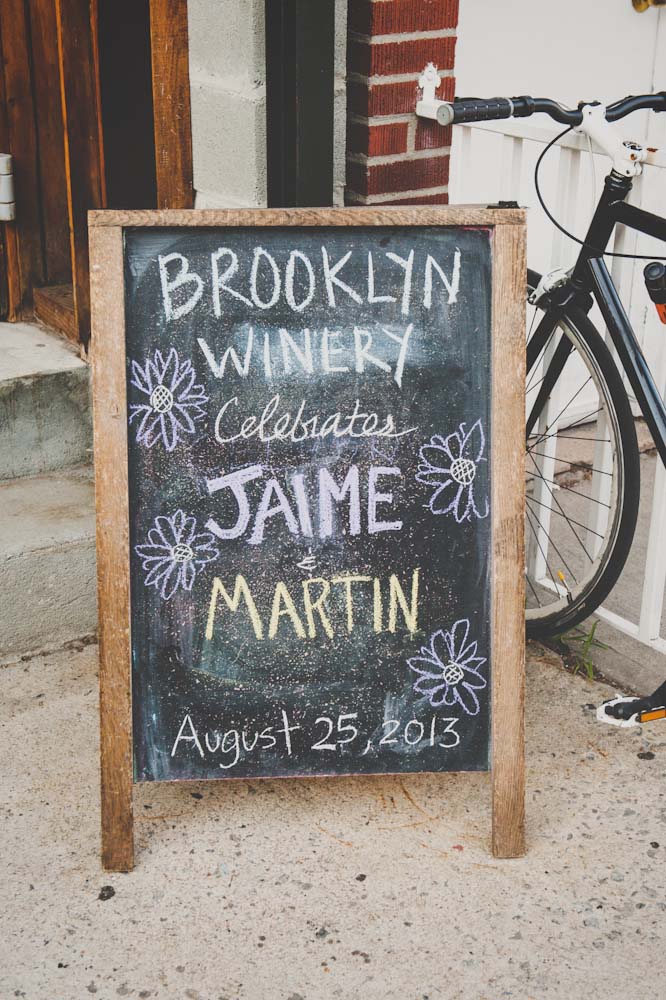 BROOKLYN
WINERY
Celebrates
JAIME
&
MARTIN
August 25, 2013